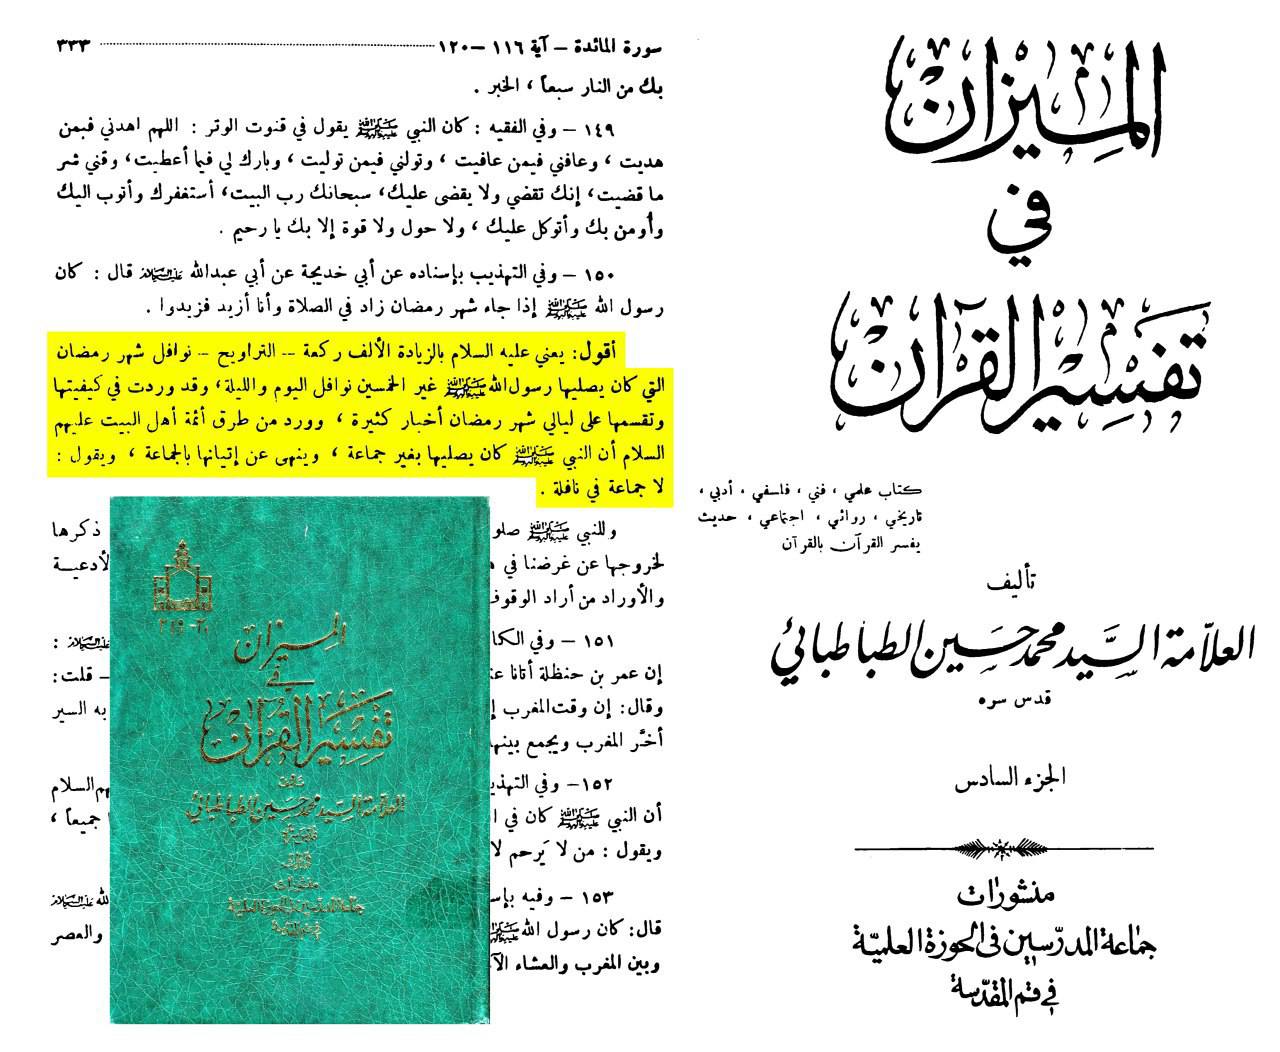 سورة المائدة – آية ١١٦ – ١٢٠ ٣٣٣
بك من النار سبعاً ، الخبر .
١٤٩ – وفي الفقيه : كان النبي ﷺ يقول في قنوت الوتر : اللهم اهدني فيمن
هديت ، وعافني فيمن عافيت ، وتولني فيمن توليت ، وبارك لي فيما أعطيت، وقني شر
ما قضيت، إنك تقضي ولا يقضى عليك، سبحانك رب البيت، أستغفرك وأتوب اليك
وأومن بك وأتوكل عليك ، ولا حول ولا قوة إلا بك يا رحيم .
١٥٠ – وفي التهذيب بإسناده عن أبي خديجة عن أبي عبدالله عليه السلام قال : كان
رسول الله ﷺ إذا جاء شهر رمضان زاد في الصلاة وأنا أزيد فزيدوا .
أقول: يعني عليه السلام بالزيادة الألف ركعة -- التراويح – نوافل شهر رمضان
التي كان يصليها رسول الله ﷺ غير الخمسين نوافل اليوم والليلة، وقد وردت في كيفيتها
وتقسمها على ليالي شهر رمضان أخبار كثيرة ، وورد من طرق أئمة أهل البيت عليهم
السلام أن النبي ﷺ كان يصليها بغير جماعة ، وينهى عن إتيانها بالجماعة ، ويقول :
لا جماعة في نافلة .
وللنبي ﷺ صلو ذكرها
لخروجها عن غرضنا في لأدعيــة
والأوراد من أراد الوقوف
١٥١ – وفي الكا عليه السلام :
إن عمر بن حنظلة أتانا عن – قلت :
وقال: إن وقت المغرب إ به السير
أخّر المغرب ويجمع بينها
١٥٢ – وفي التهذيب هم السلام
أن النبي ﷺ كان في ا جميعاً ،
ويقول : من لا يَرحم لا
١٥٣ – وفيه بإس لله عليه السلام
قال: كان رسول الله ﷺ والعصر
وبين المغرب والعشاء الآ
الميزان
في
تفسير القرآن
تأليف
العلامة السيد محمد حسين الطباطبائي
قدس سره
منشورات
جماعة المدرسين في الحوزة العلمية
في قم المقدسة
الميزان
في
تفسير القرآن
كتاب علمي ، فني ، فلسفي ، أدبي ،
تاريخي ، روائي ، اجتماعي ، حديث
يفسر القرآن بالقرآن
تأليف
العلّامة السَّيد محمد حسَين الطباطبائي
قدس سره
الجزء السادس
منشورات
جماعة المدرّسين في الحوزة العلميّة
في قم المقدّسة